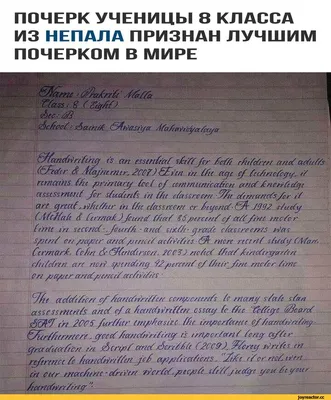 ПОЧЕРК УЧЕНИЦЫ 8 КЛАССА
ИЗ НЕПАЛА ПРИЗНАН ЛУЧШИМ
ПОЧЕРКОМ В МИРЕ
Name : Prakriti Malla
Class : 8 (Eight)
Sec : B
School : Sainik Awasiya Mahavidyalaya
Handwriting is an essential skill for both children and adults
(Feder & Majnemer, 2007) Even in the age of technology, it
remains the primary tool of communication and knowledge
assessment for students in the classroom. The demands for it
are great, whether in the classroom or beyond. A 1992 study
(McHale & Cermak) found that 85 percent of all fine motor
time in second- fourth- and sixth- grade classrooms was
spent on paper and pencil activities. A more recent study (Marr,
Cermark, Cohn & Henderson, 2003) noted that kindergarten
children are now spending 42 percent of their fine motor time
on paper and pencil activities.
The addition of handwritten components to many state stan
assessments and of a handwritten essay to the College Board
SAT in 2005 further emphasize the importance of handwriting
Furthermore, good handwriting is important long after
graduation in Script and Scribble (2009), Florey writes in
reference to handwritten job applications, "Like it or not, even
in our machine-driven world, people still judge you by your
handwriting"
joyreactor.cc